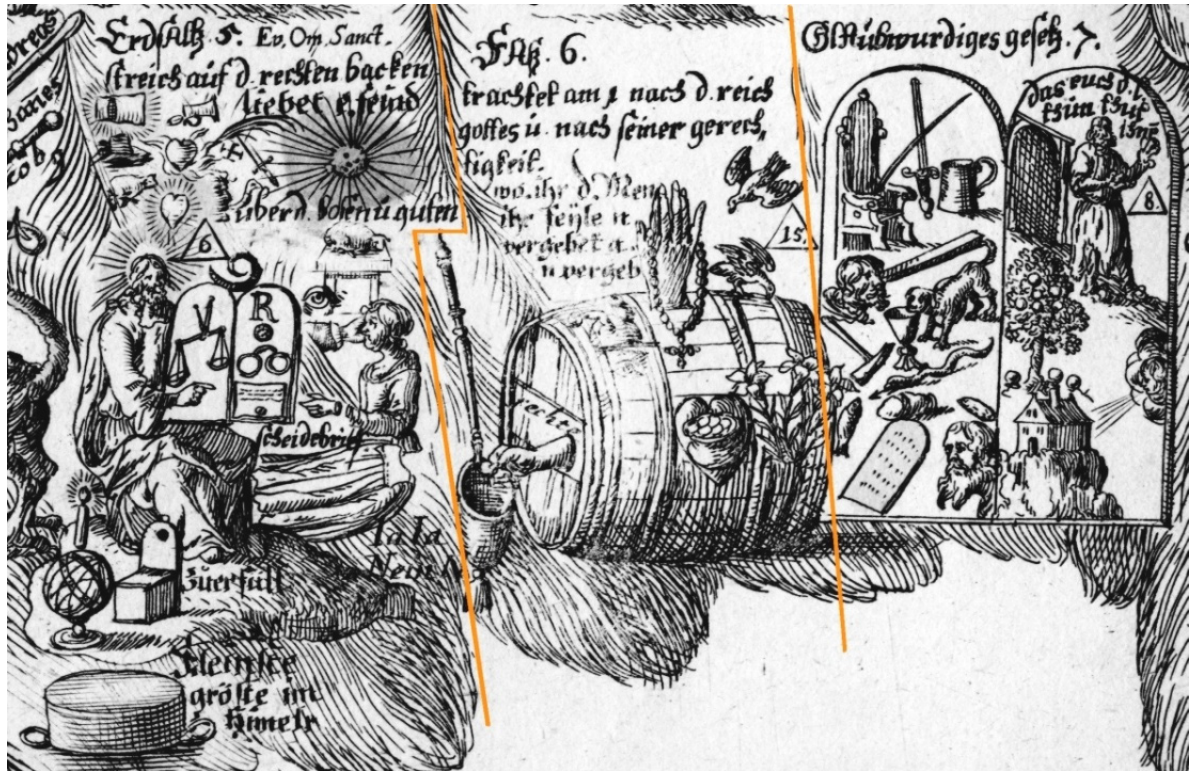 Erdsaltz. 5. Ev. Om. Sanct.
streich auf d. rechten backen
liebet e. feind
über d. bösen u guten
6
R
scheidebrief
ia ia
Nein
Zuerfült
kleinste
gröste im
Himelr
Faß. 6.
trachtet am 1 nach d. reich
gottes ü. nach seiner gerech,
tigkeit.
wo. ihr d. Men
ihr. fehle n
vergebet a.
u vergeb
15.
recht
Glaubwurdiges gesetz. 7.
das euch d. l.
thun thut
ihnē
8.